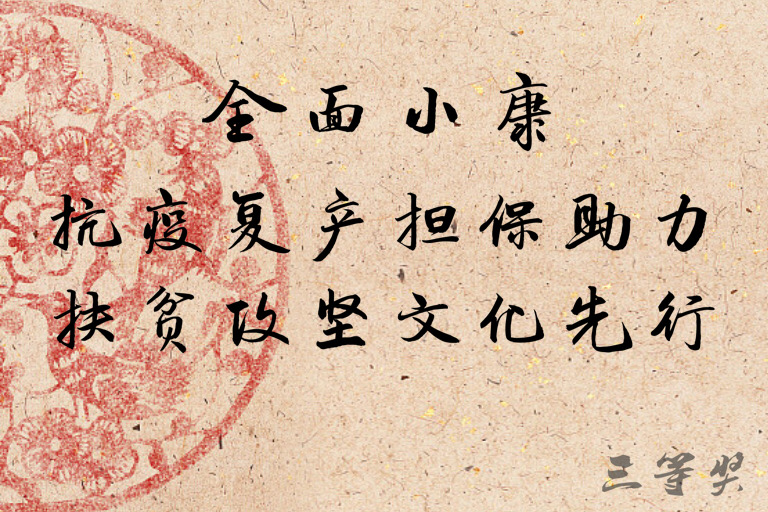 全面小康
抗疫复产担保助力
扶贫攻坚文化先行
三等奖